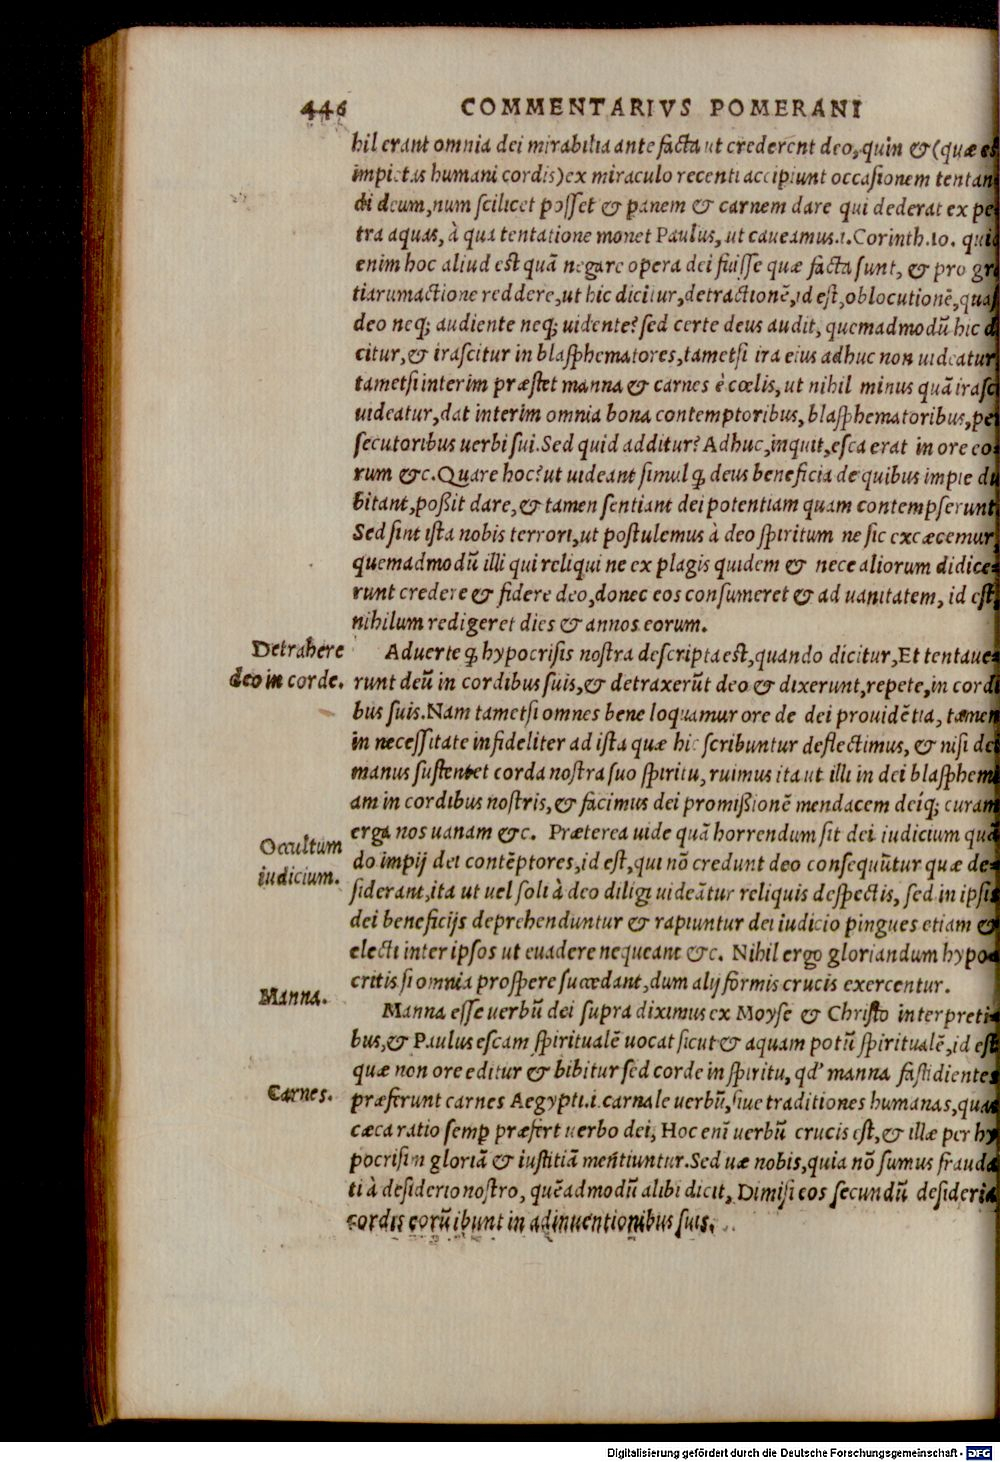 446 COMMENTARIVS POMERANI
hil erant omnia dei mirabilia ante facta ut crederent deo, quin &(quæ es
impietas humani cordis) ex miraculo recenti accipiunt occasionem tentan
di deum, num scilicet posset & panem & carnem dare qui dederat ex pe
tra aquas, à qua tentatione monet Paulus, ut caueamus.1.Corinth.10. quid
enim hoc aliud est quã negare opera dei fuisse quæ facta sunt, & pro gra
tiarumactione reddere, ut hic dicitur, detractionẽ, id est, oblocutionẽ, quasi
deo neq; audiente neq; uidente? sed certe deus audit, quemadmodũ hic di
citur, & irascitur in blasphematores, tametsi ira eius adhuc non uideatur,
tametsi interim præstet manna & carnes è cœlis, ut nihil minus quã irasci
uideatur, dat interim omnia bona contemptoribus, blasphematoribus, per
secutoribus uerbi sui. Sed quid additur? Adhuc, inquit, esca erat in ore eo-
rum &c. Quare hoc? ut uideant simul ꝙ deus beneficia de quibus impie du
bitant, poßit dare, & tamen sentiant dei potentiam quam contempserunt,
Sed sint ista nobis terrori, ut postulemus à deo spiritum ne sic excæcemur,
quemadmodũ illi qui reliqui ne ex plagis quidem & nece aliorum didice-
runt credere & fidere deo, donec eos consumeret & ad uanitatem, id est,
nihilum redigeret dies & annos eorum.
Detrahere Aduerte ꝙ hypocrisis nostra descripta est, quando dicitur, Et tentaue-
deo in corde. runt deũ in cordibus suis, & detraxerũt deo & dixerunt, repete, in cordi
bus suis. Nam tametsi omnes bene loquamur ore de dei prouidẽtia, tamen
in necessitate infideliter ad ista quæ hic scribuntur deflectimus, & nisi dei
manus sustentet corda nostra suo spiritu, ruimus ita ut illi in dei blasphemi
am in cordibus nostris, & facimus dei promißionẽ mendacem deíq; curam
erga nos uanam &c. Præterea uide quã horrendum sit dei iudicium quã
Occultum
do impij dei contẽptores, id est, qui nõ credunt deo consequũtur quæ de-
iudicium.
siderant, ita ut uel soli à deo diligi uideãtur reliquis despectis, sed in ipsis
dei beneficijs deprehenduntur & rapiuntur dei iudicio pingues etiam &
electi inter ipsos ut euadere nequeant &c. Nihil ergo gloriandum hypo-
critis si omnia prospere succedant, dum alij formis crucis exercentur.
Manna.
Manna esse uerbũ dei supra diximus ex Moyse & Christo interpreti-
bus, & Paulus escam spiritualẽ uocat sicut & aquam potũ spiritualẽ, id est
quæ non ore editur & bibitur sed corde in spiritu, qd' manna fastidientes
Carnes. præferunt carnes Aegypti.i. carnale uerbũ, siue traditiones humanas, quas
cæca ratio semꝑ præfert uerbo dei, Hoc enĩ uerbũ crucis est, & illæ per hy
pocrisim gloriã & iustitiã mẽtiuntur. Sed uæ nobis, quia nõ sumus frauda
ti à desiderio nostro, quẽadmodũ alibi dicit, Dimisi eos secundũ desideria
cordis eorũ ibunt in adinuentionibus suis.
Digitalisierung gefördert durch die Deutsche Forschungsgemeinschaft - DFG